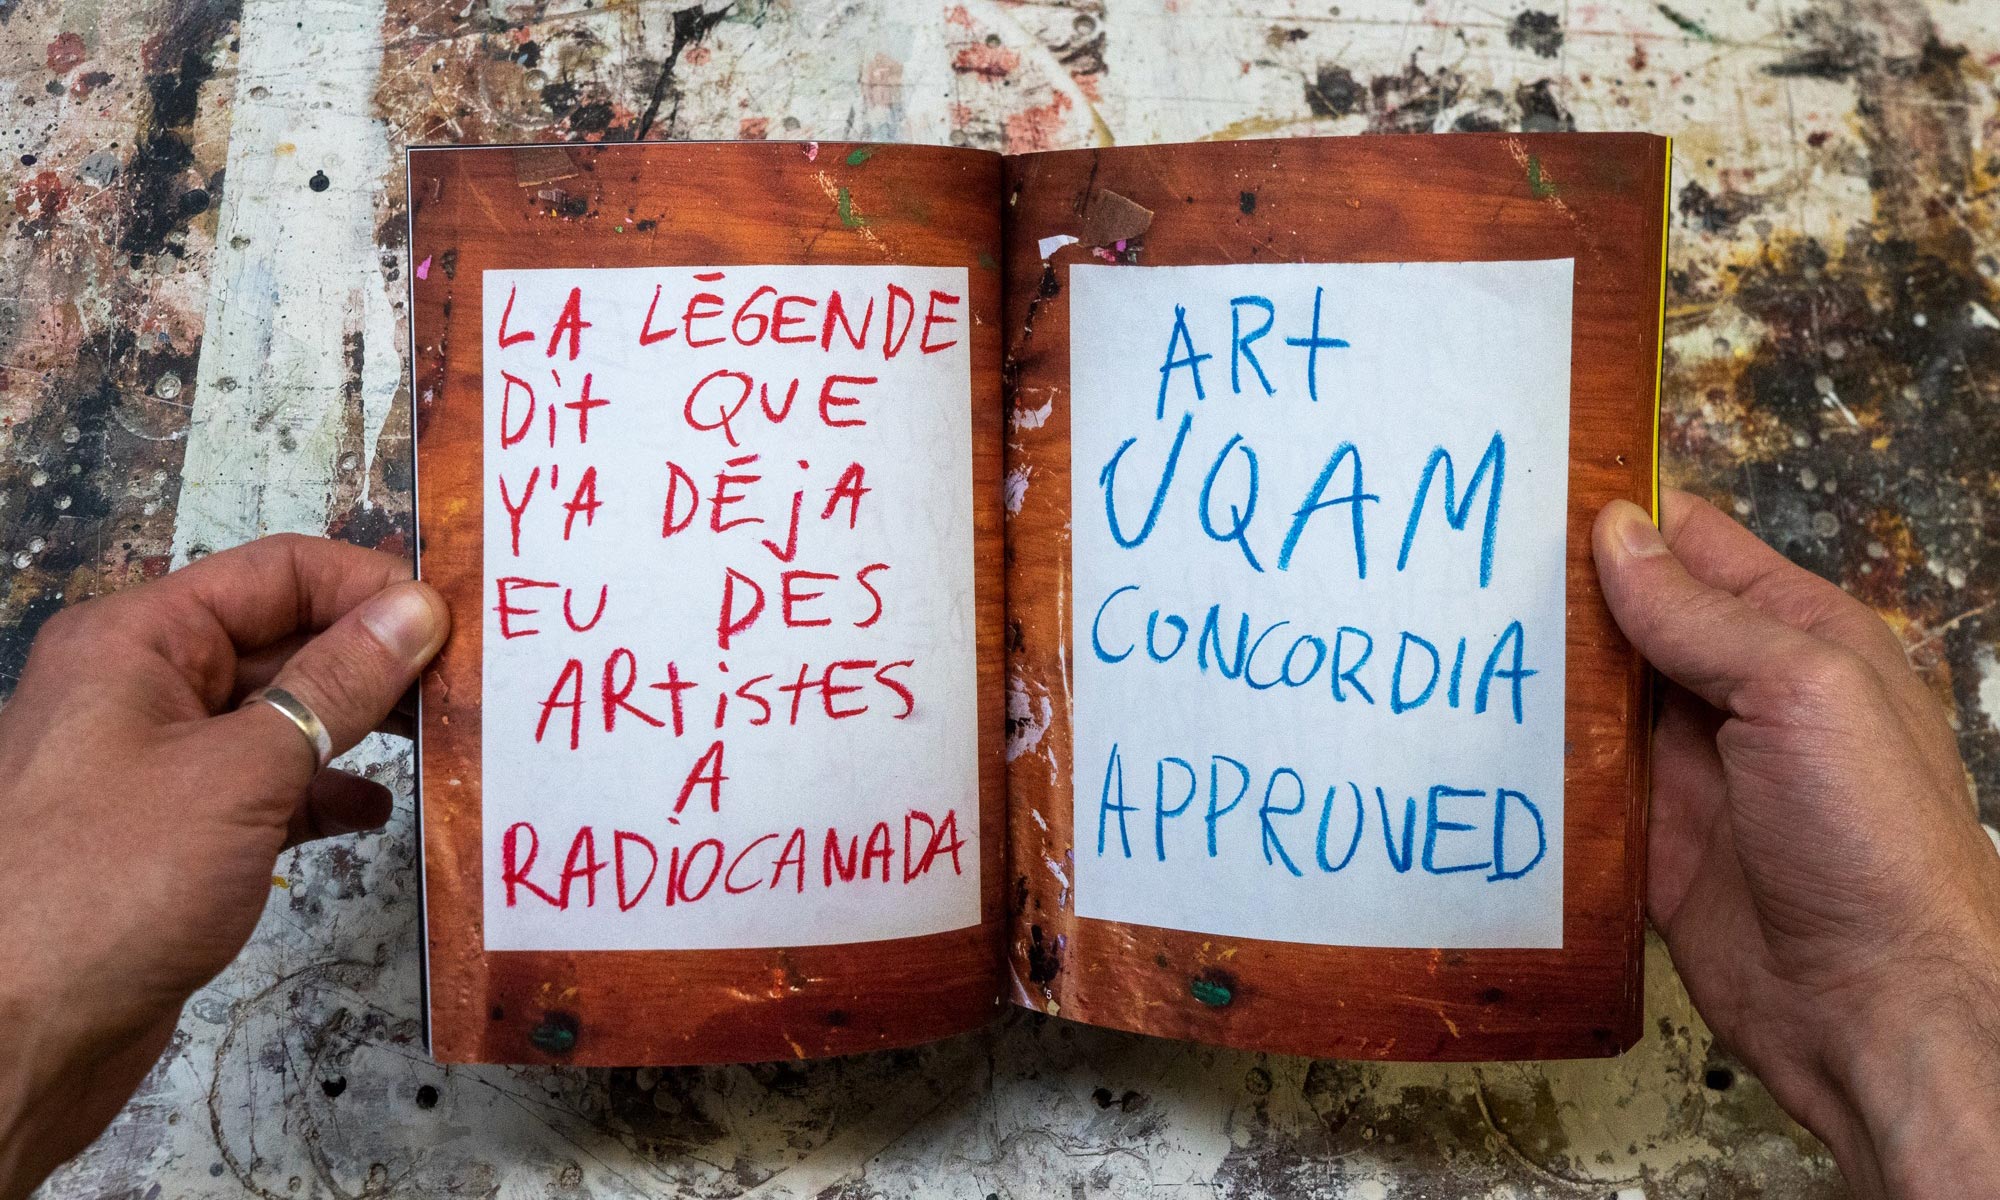 LA LÉGENDE
Dit QUE
Y'A DÉjA
EU DES
ARtistES
A
RADiOCANADA
4
ARt
UQAM
CONCORDIA
APPROUVED
5